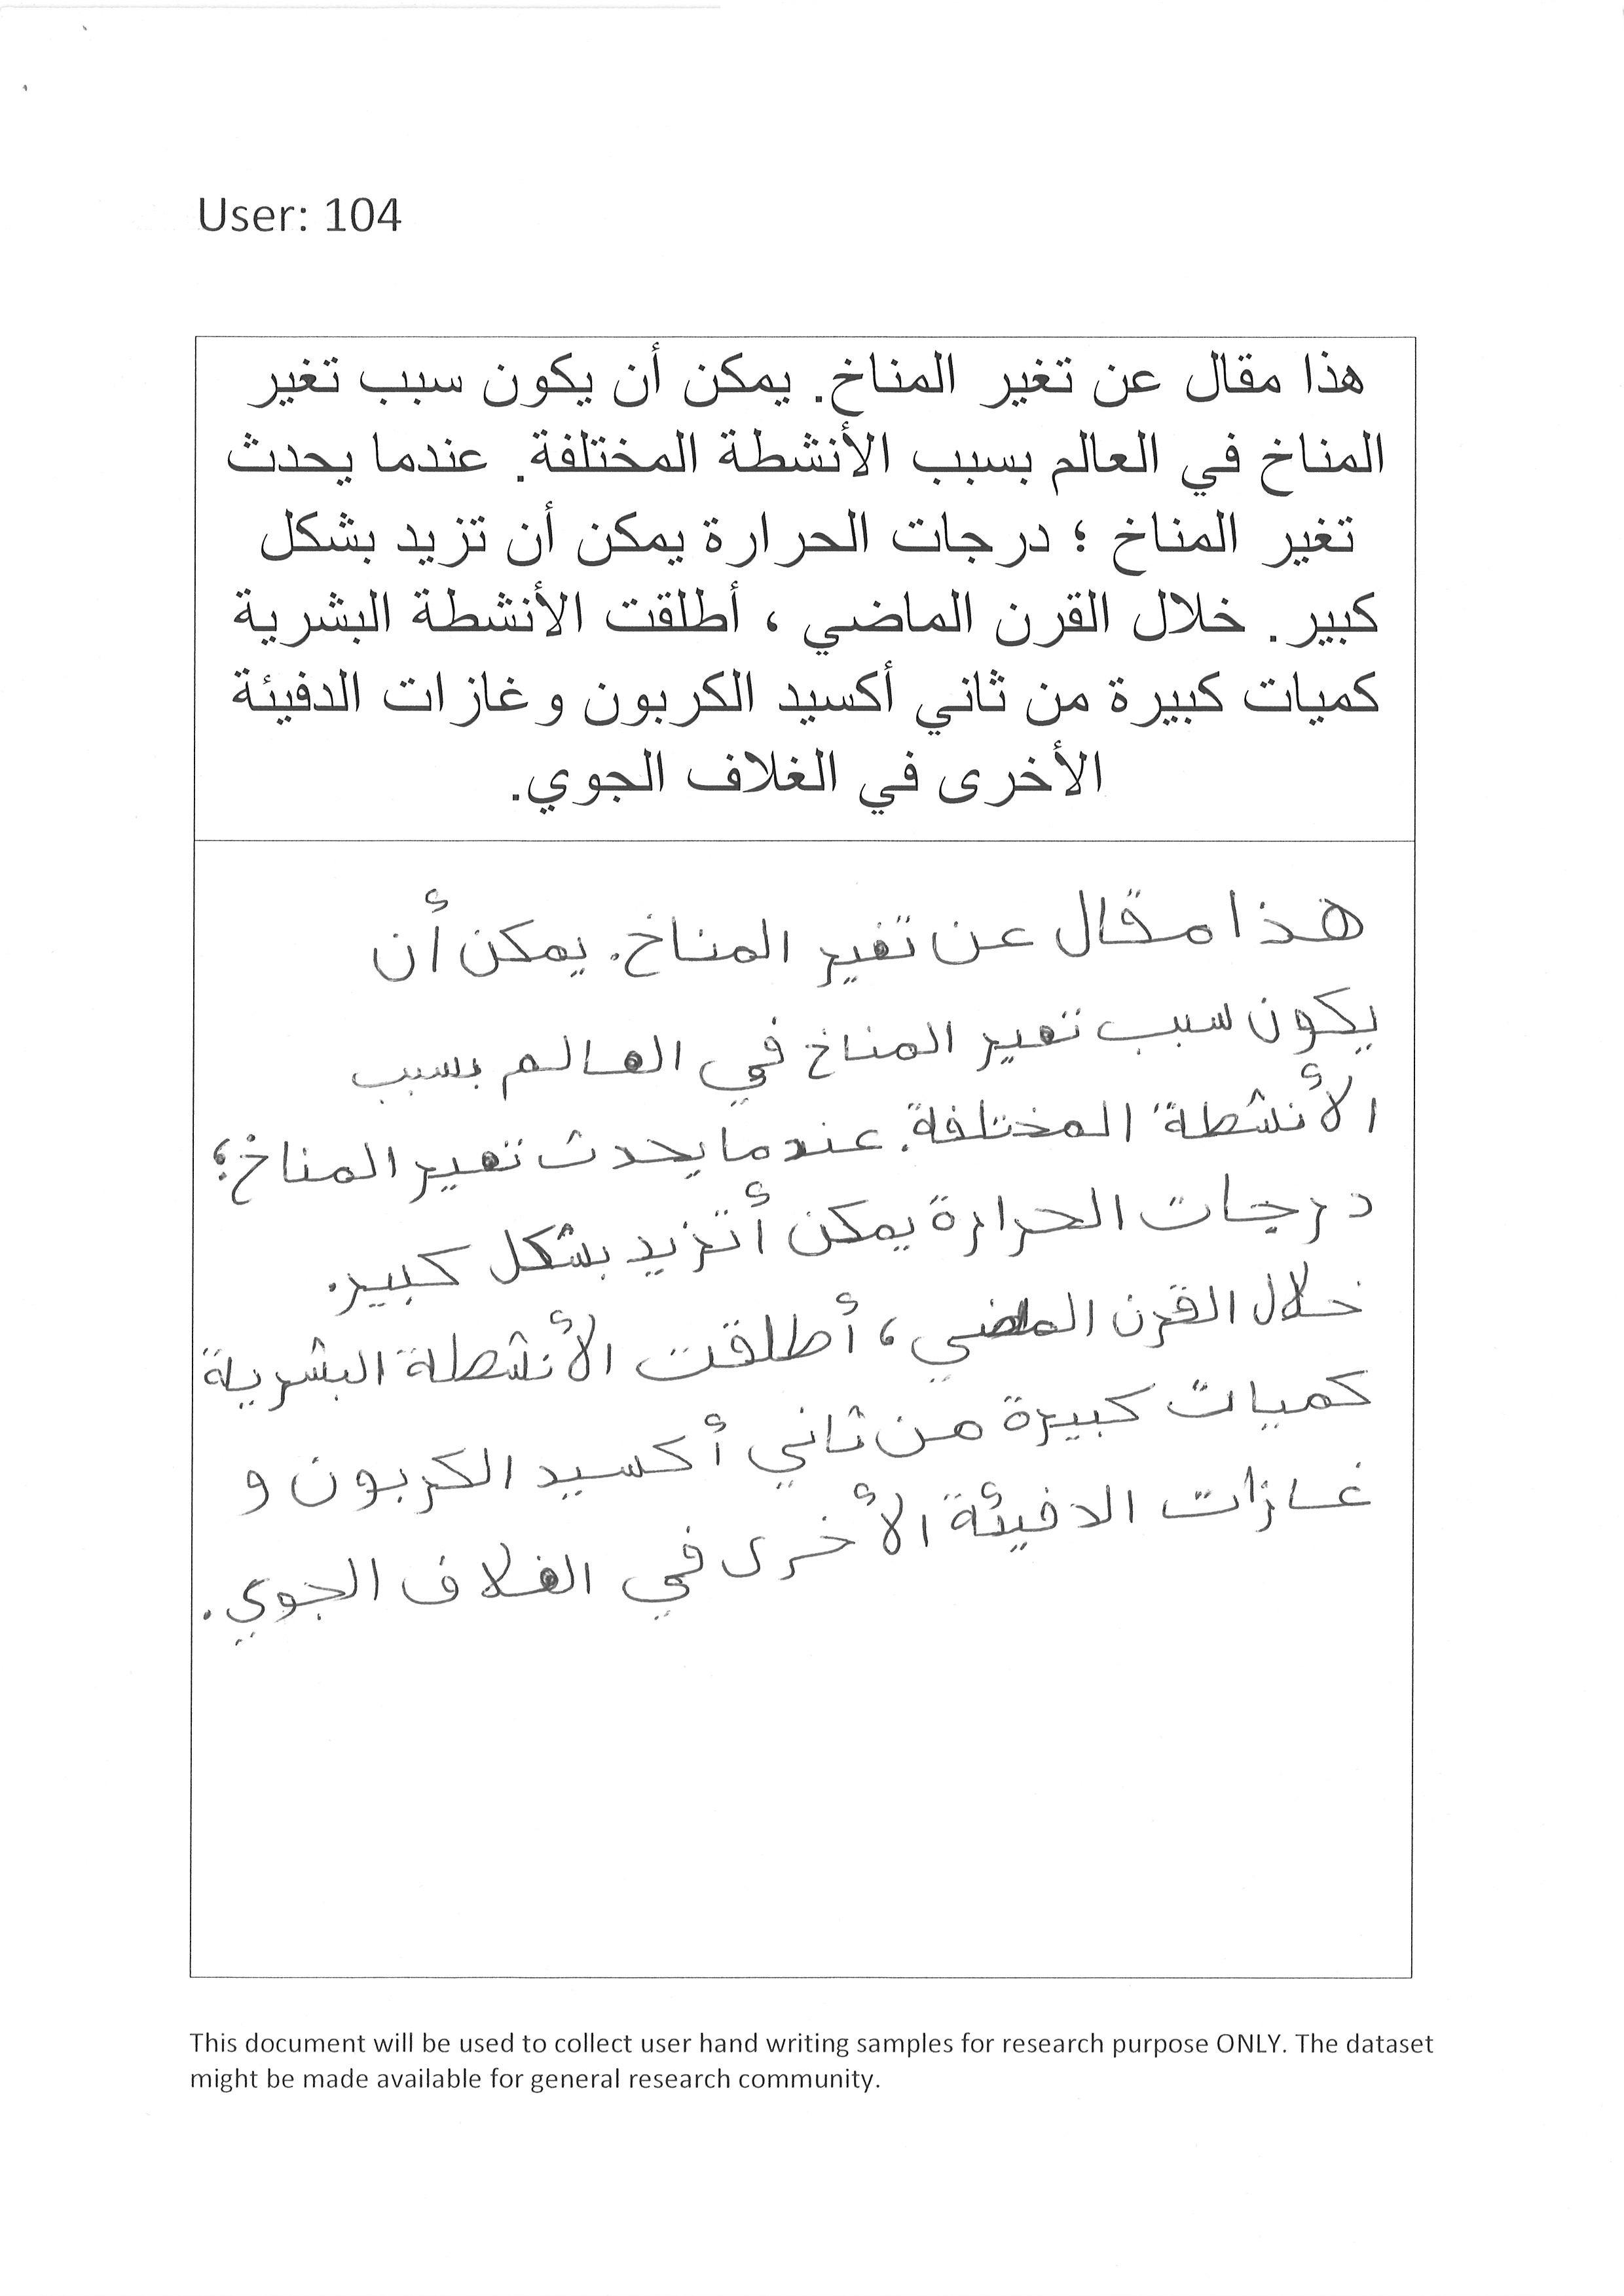 User: 104
هذا مقال عن تغير المناخ. يمكن أن يكون سبب تغير
المناخ في العالم بسبب الأنشطة المختلفة. عندما يحدث
تغير المناخ ؛ درجات الحرارة يمكن أن تزيد بشكل
كبير. خلال القرن الماضي ، أطلقت الأنشطة البشرية
كميات كبيرة من ثاني أكسيد الكربون وغازات الدفيئة
الأخرى في الغلاف الجوي.
هذا مقال عن تغير المناخ. يمكن أن
يكون سبب تغير المناخ في العالم بسبب
الأنشطة المختلفة. عندما يحدث تغير المناخ؛
درجات الحرارة يمكن أتزيد بشكل كبير.
خلال القرن الماضي، أطلقت الأنشطة البشرية
كميات كبيرة من ثاني أكسيد الكربون و
غازات الدفيئة الأخرى في الغلاف الجوي.
This document will be used to collect user hand writing samples for research purpose ONLY. The dataset
might be made available for general research community.